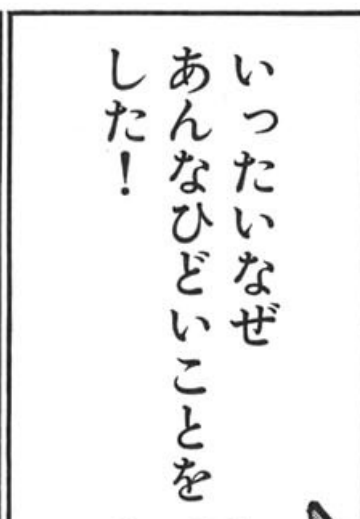 いったいなぜ
あんなひどいことを
した！